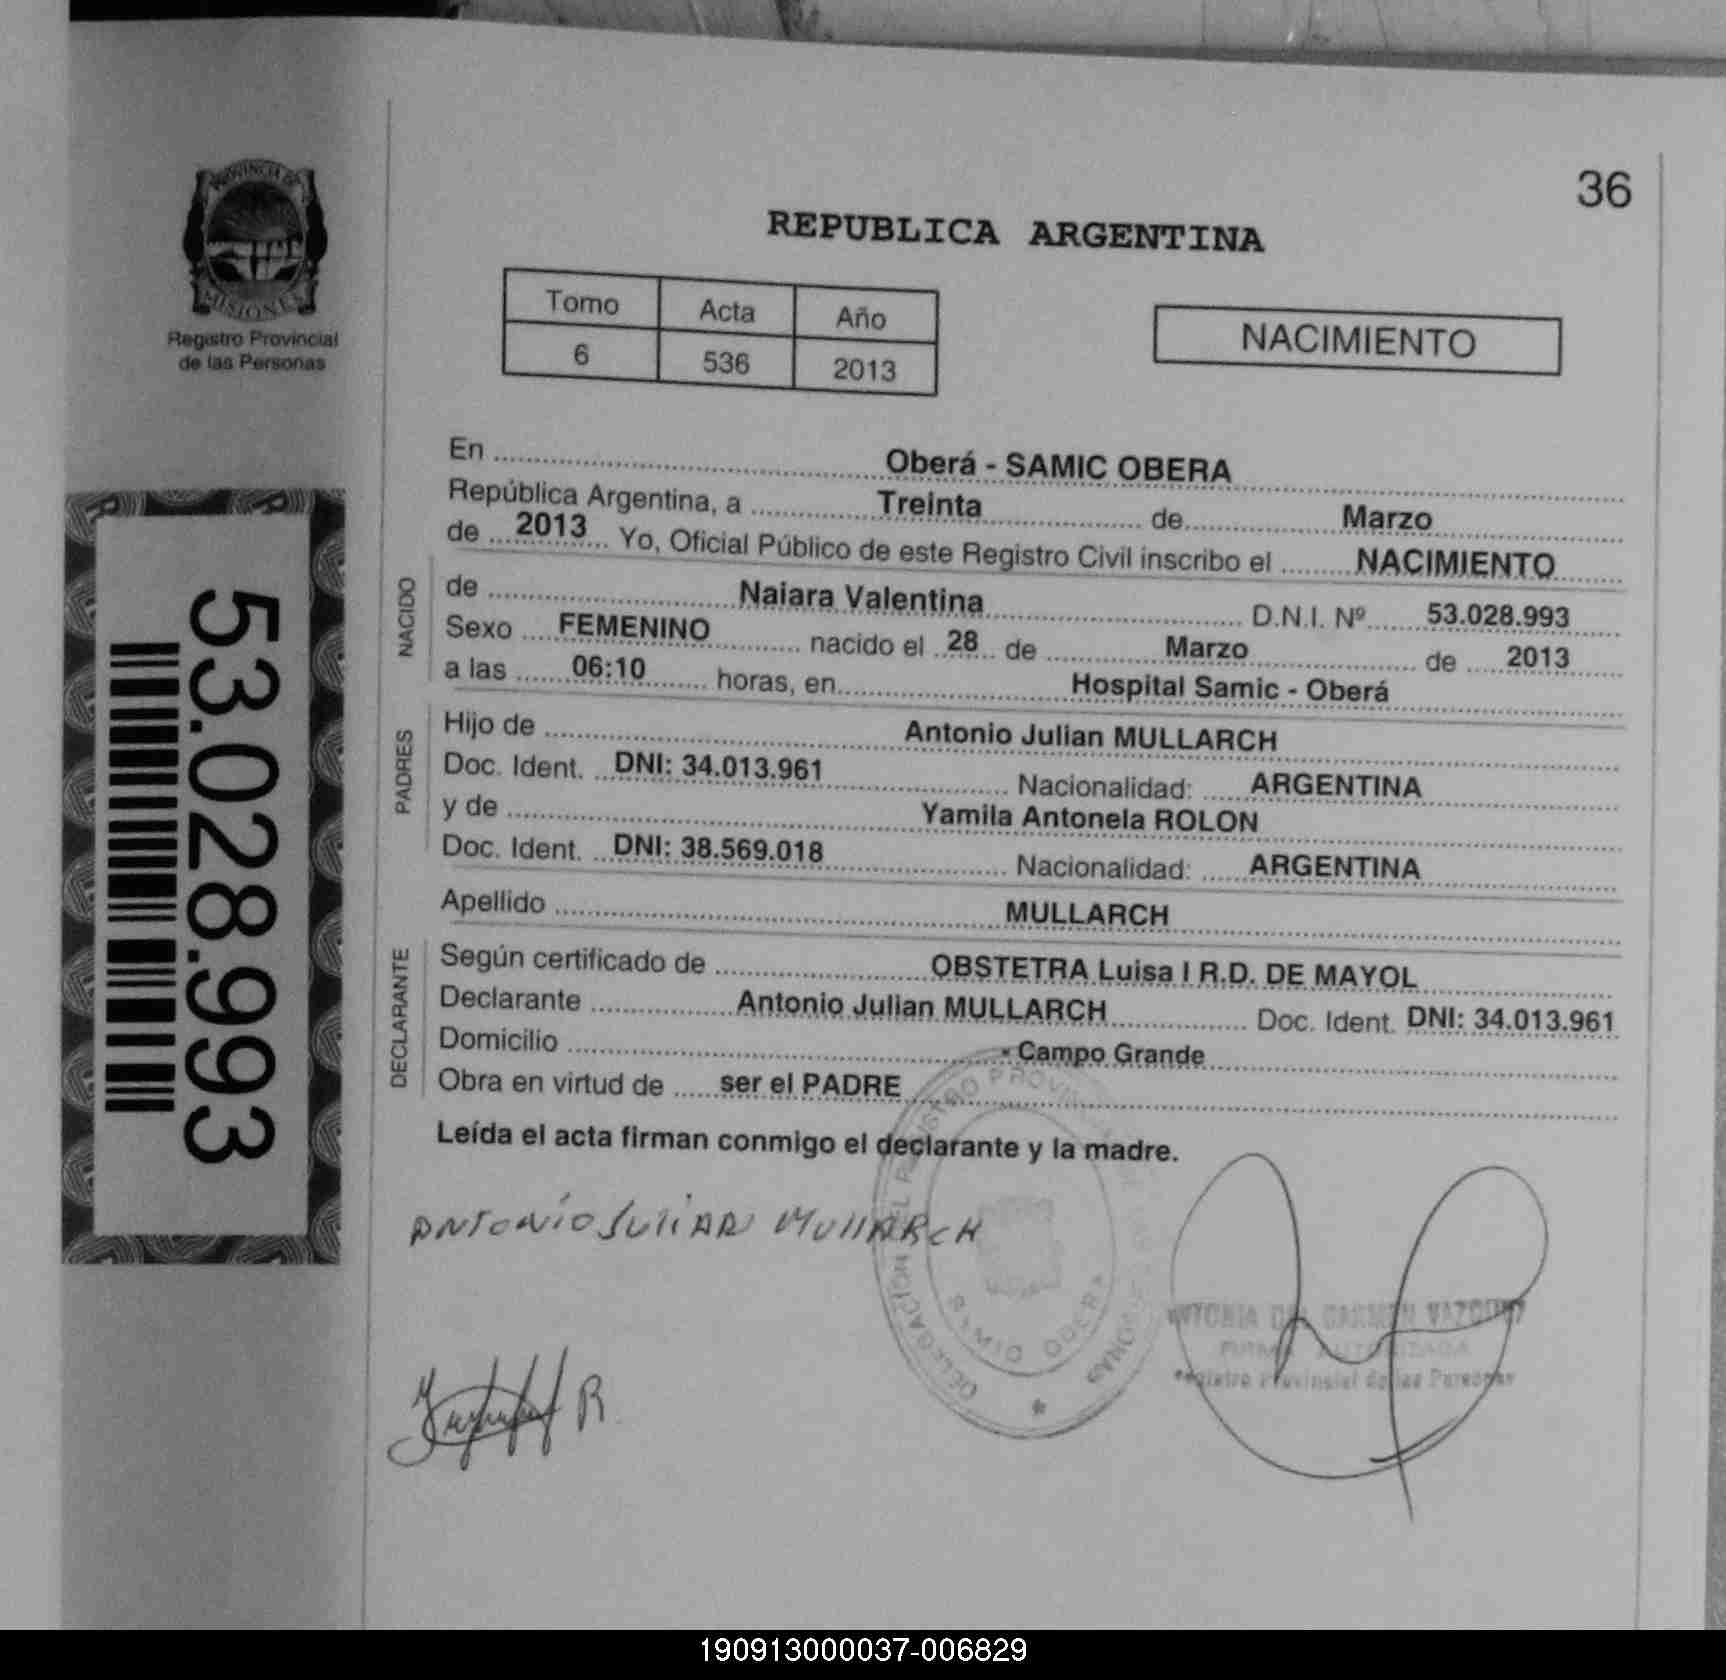 36
REPUBLICA ARGENTINA
PROVINCIA DE
MISIONES
Registro Provincial
de las Personas
Tomo Acta Año
6 536 2013
NACIMIENTO
En Oberá - SAMIC OBERA
República Argentina, a Treinta de Marzo
de 2013 Yo, Oficial Público de este Registro Civil inscribo el NACIMIENTO
NACIDO
de Naiara Valentina D.N.I. Nº 53.028.993
Sexo FEMENINO nacido el 28 de Marzo de 2013
a las 06:10 horas, en Hospital Samic - Oberá
PADRES
Hijo de Antonio Julian MULLARCH
Doc. Ident. DNI: 34.013.961 Nacionalidad: ARGENTINA
y de Yamila Antonela ROLON
Doc. Ident. DNI: 38.569.018 Nacionalidad: ARGENTINA
Apellido MULLARCH
DECLARANTE
Según certificado de OBSTETRA Luisa I R.D. DE MAYOL
Declarante Antonio Julian MULLARCH Doc. Ident. DNI: 34.013.961
Domicilio - Campo Grande
Obra en virtud de ser el PADRE
Leída el acta firman conmigo el declarante y la madre.
53.028.993
ANTONIO JULIAN MULLARCH
DELEGACIÓN DEL REGISTRO PROVINCIAL
DEL CARMEN VAZQUEZ
FIRMA AUTORIZADA
Registro Provincial de las Personas
190913000037-006829